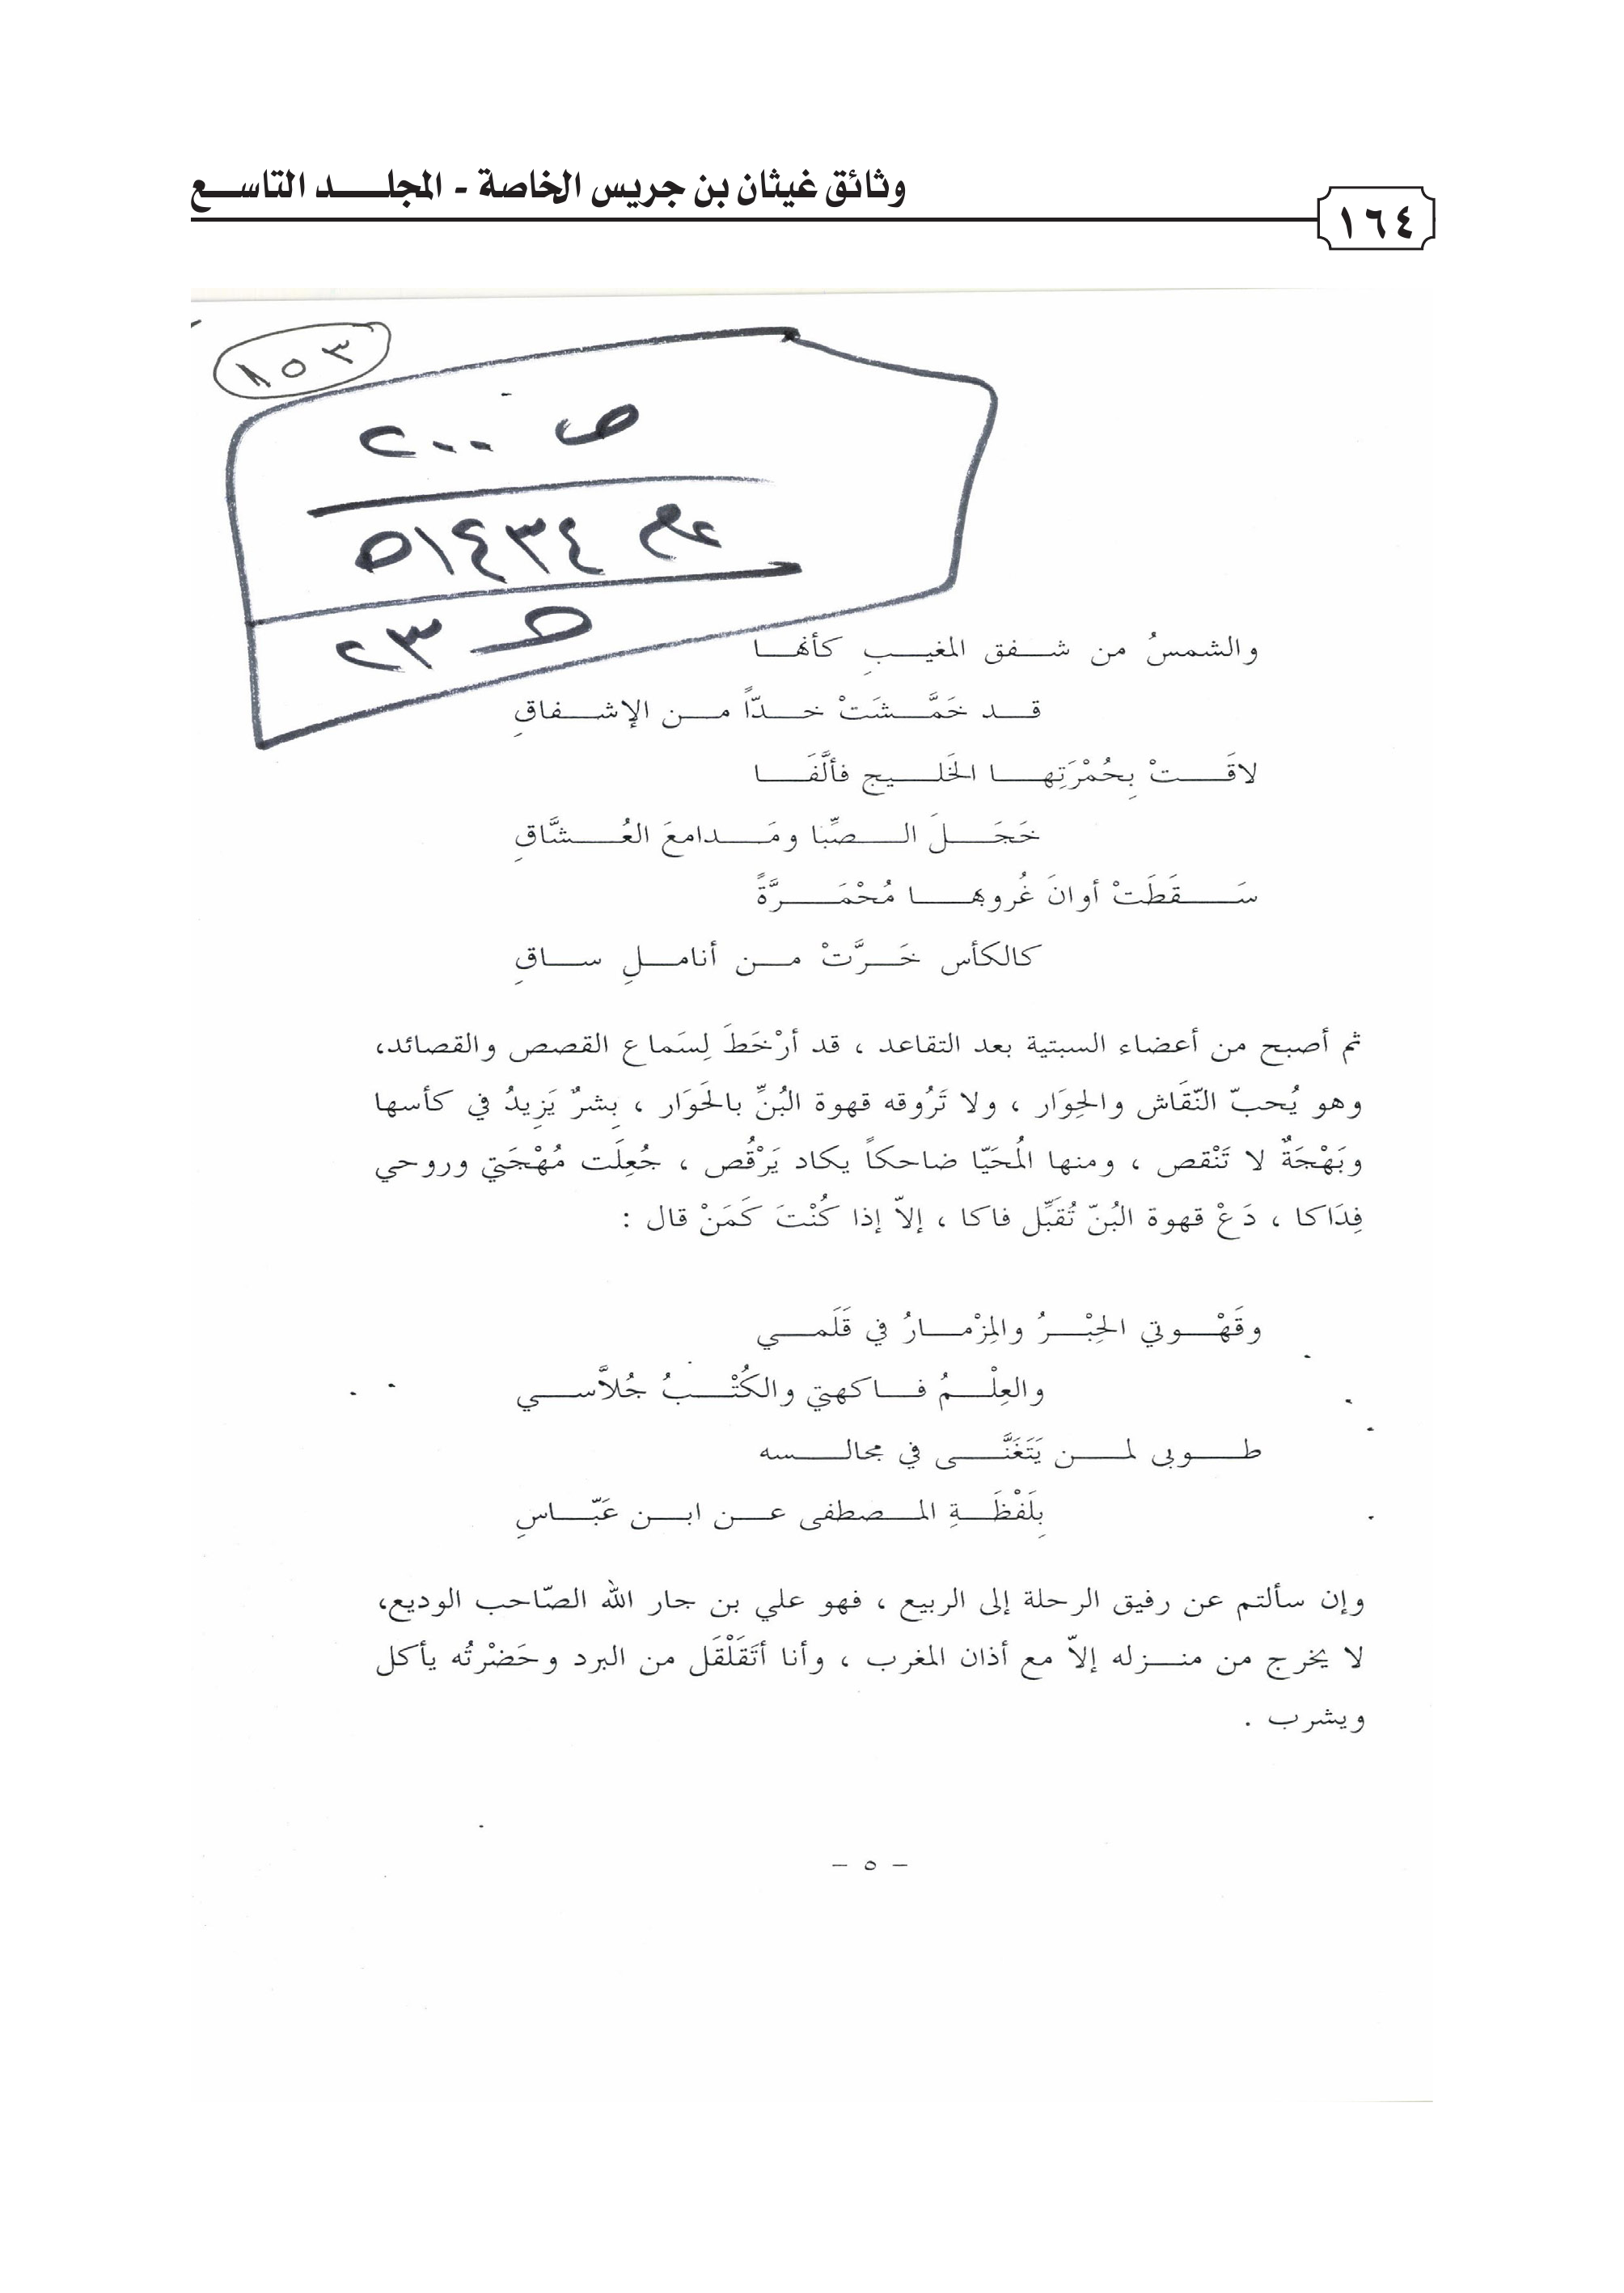 وثائق غيثان بن جريس الخاصة - المجلد التاسع
١٦٤
٨٥٣
ص ٢٠٠
عام ١٤٣٤ه
ط ٢٣
والشمسُ من شفق المغيبِ كأنها
قد خَمَّشَتْ خدّاً من الإشفاقِ
لاقَتْ بِحُمْرَتِها الخَليج فألَّفَا
خَجَلَ الصِّبا ومَدامعَ العُشَّاقِ
سَقَطَتْ أوانَ غُروبها مُحْمَرَّةً
كالكأس خَرَّتْ من أناملِ ساقِ
ثم أصبح من أعضاء السبتية بعد التقاعد ، قد أرْخَطَ لِسَماع القصص والقصائد،
وهو يُحبّ النّقَاش والحِوَار ، ولا تَرُوقه قهوة البُنِّ بالحَوَار ، بِشرٌ يَزِيدُ في كأسها
وبَهْجَةٌ لا تَنْقص ، ومنها المُحَيّا ضاحكاً يكاد يَرْقُص ، جُعِلَت مُهْجَتي وروحي
فِدَاكا ، دَعْ قهوة البُنّ تُقَبِّل فاكا ، إلاّ إذا كُنْتَ كَمَنْ قال :
وقَهْوتي الحِبْرُ والمِزْمارُ في قَلَمي
والعِلْمُ فاكهتي والكُتْبُ جُلاَّسي
طوبى لمن يَتَغَنَّى في مجالسه
بِلَفْظَةِ المصطفى عن ابن عَبّاسِ
وإن سألتم عن رفيق الرحلة إلى الربيع ، فهو علي بن جار الله الصّاحب الوديع،
لا يخرج من منزله إلاّ مع أذان المغرب ، وأنا أتَقَلْقَل من البرد وحَضْرتُه يأكل
ويشرب .
- ٥ -